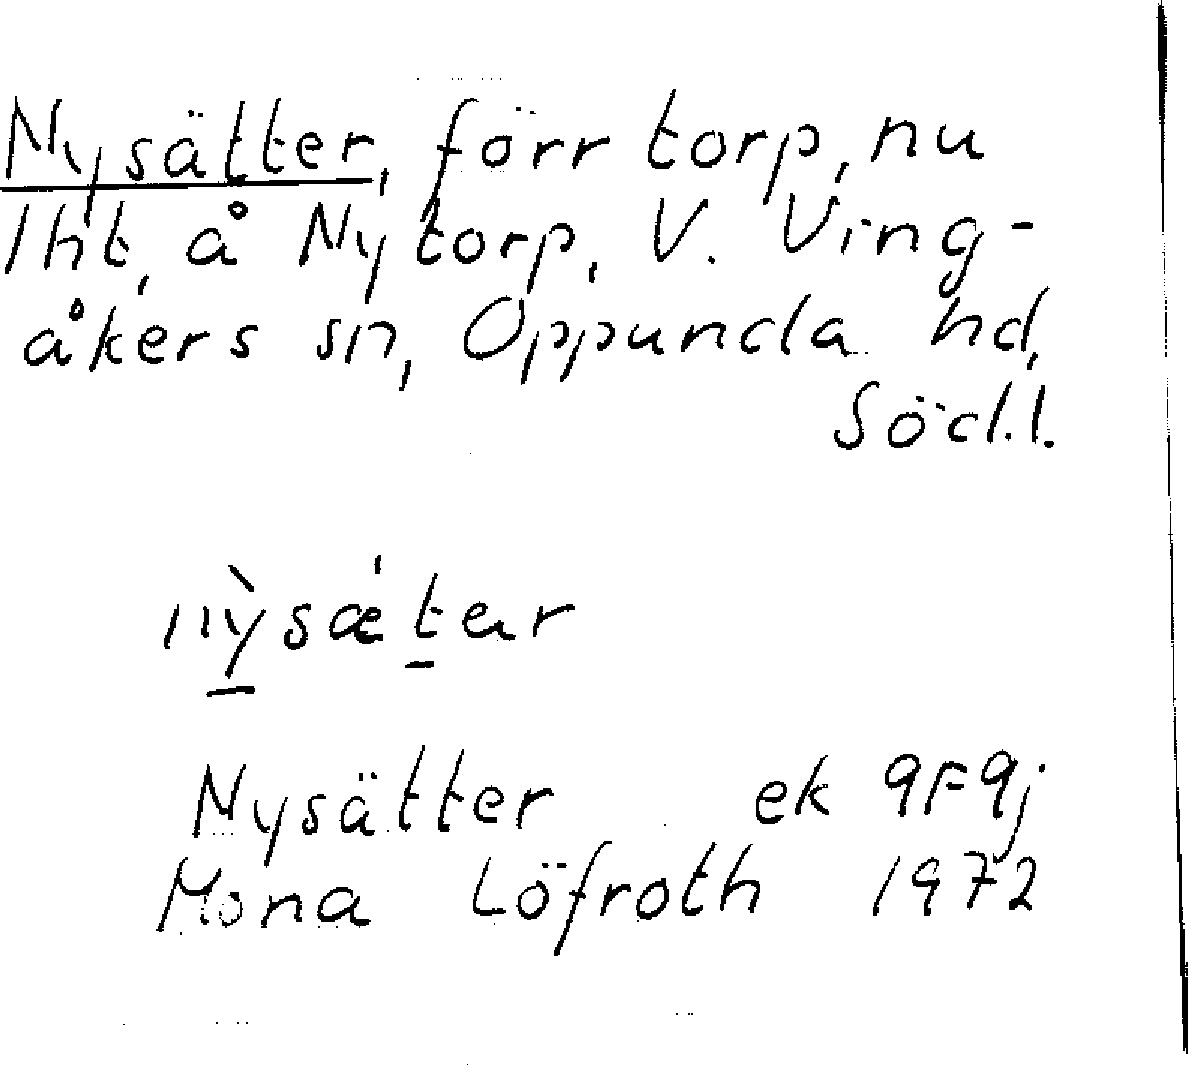 Nysätter, förr torp, nu
lht, å Nytorp, V. Ving-
åkers sn, Oppunda hd,
Söd.l.
nỳsǽtar
Nysätter ek 9F9j
Mona Löfroth 1972